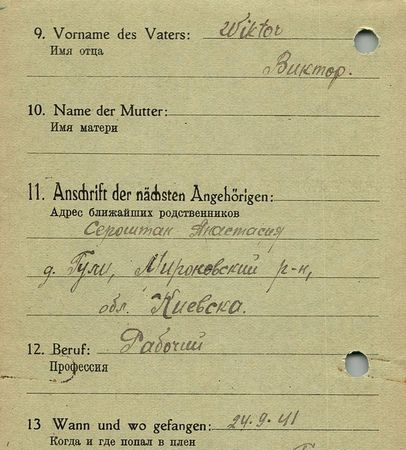 9. Vorname des Vaters: Wiktor
Имя отца
Виктор.
10. Name der Mutter:
Имя матери
11. Anschrift der nächsten Angehörigen:
Адрес ближайших родственников
Сероштан Анастасия
д. Гули, Мироновский р-н,
обл. Киевска.
12. Beruf: Рабочий
Профессия
13 Wann und wo gefangen: 24.9.41
Когда и где попал в плен